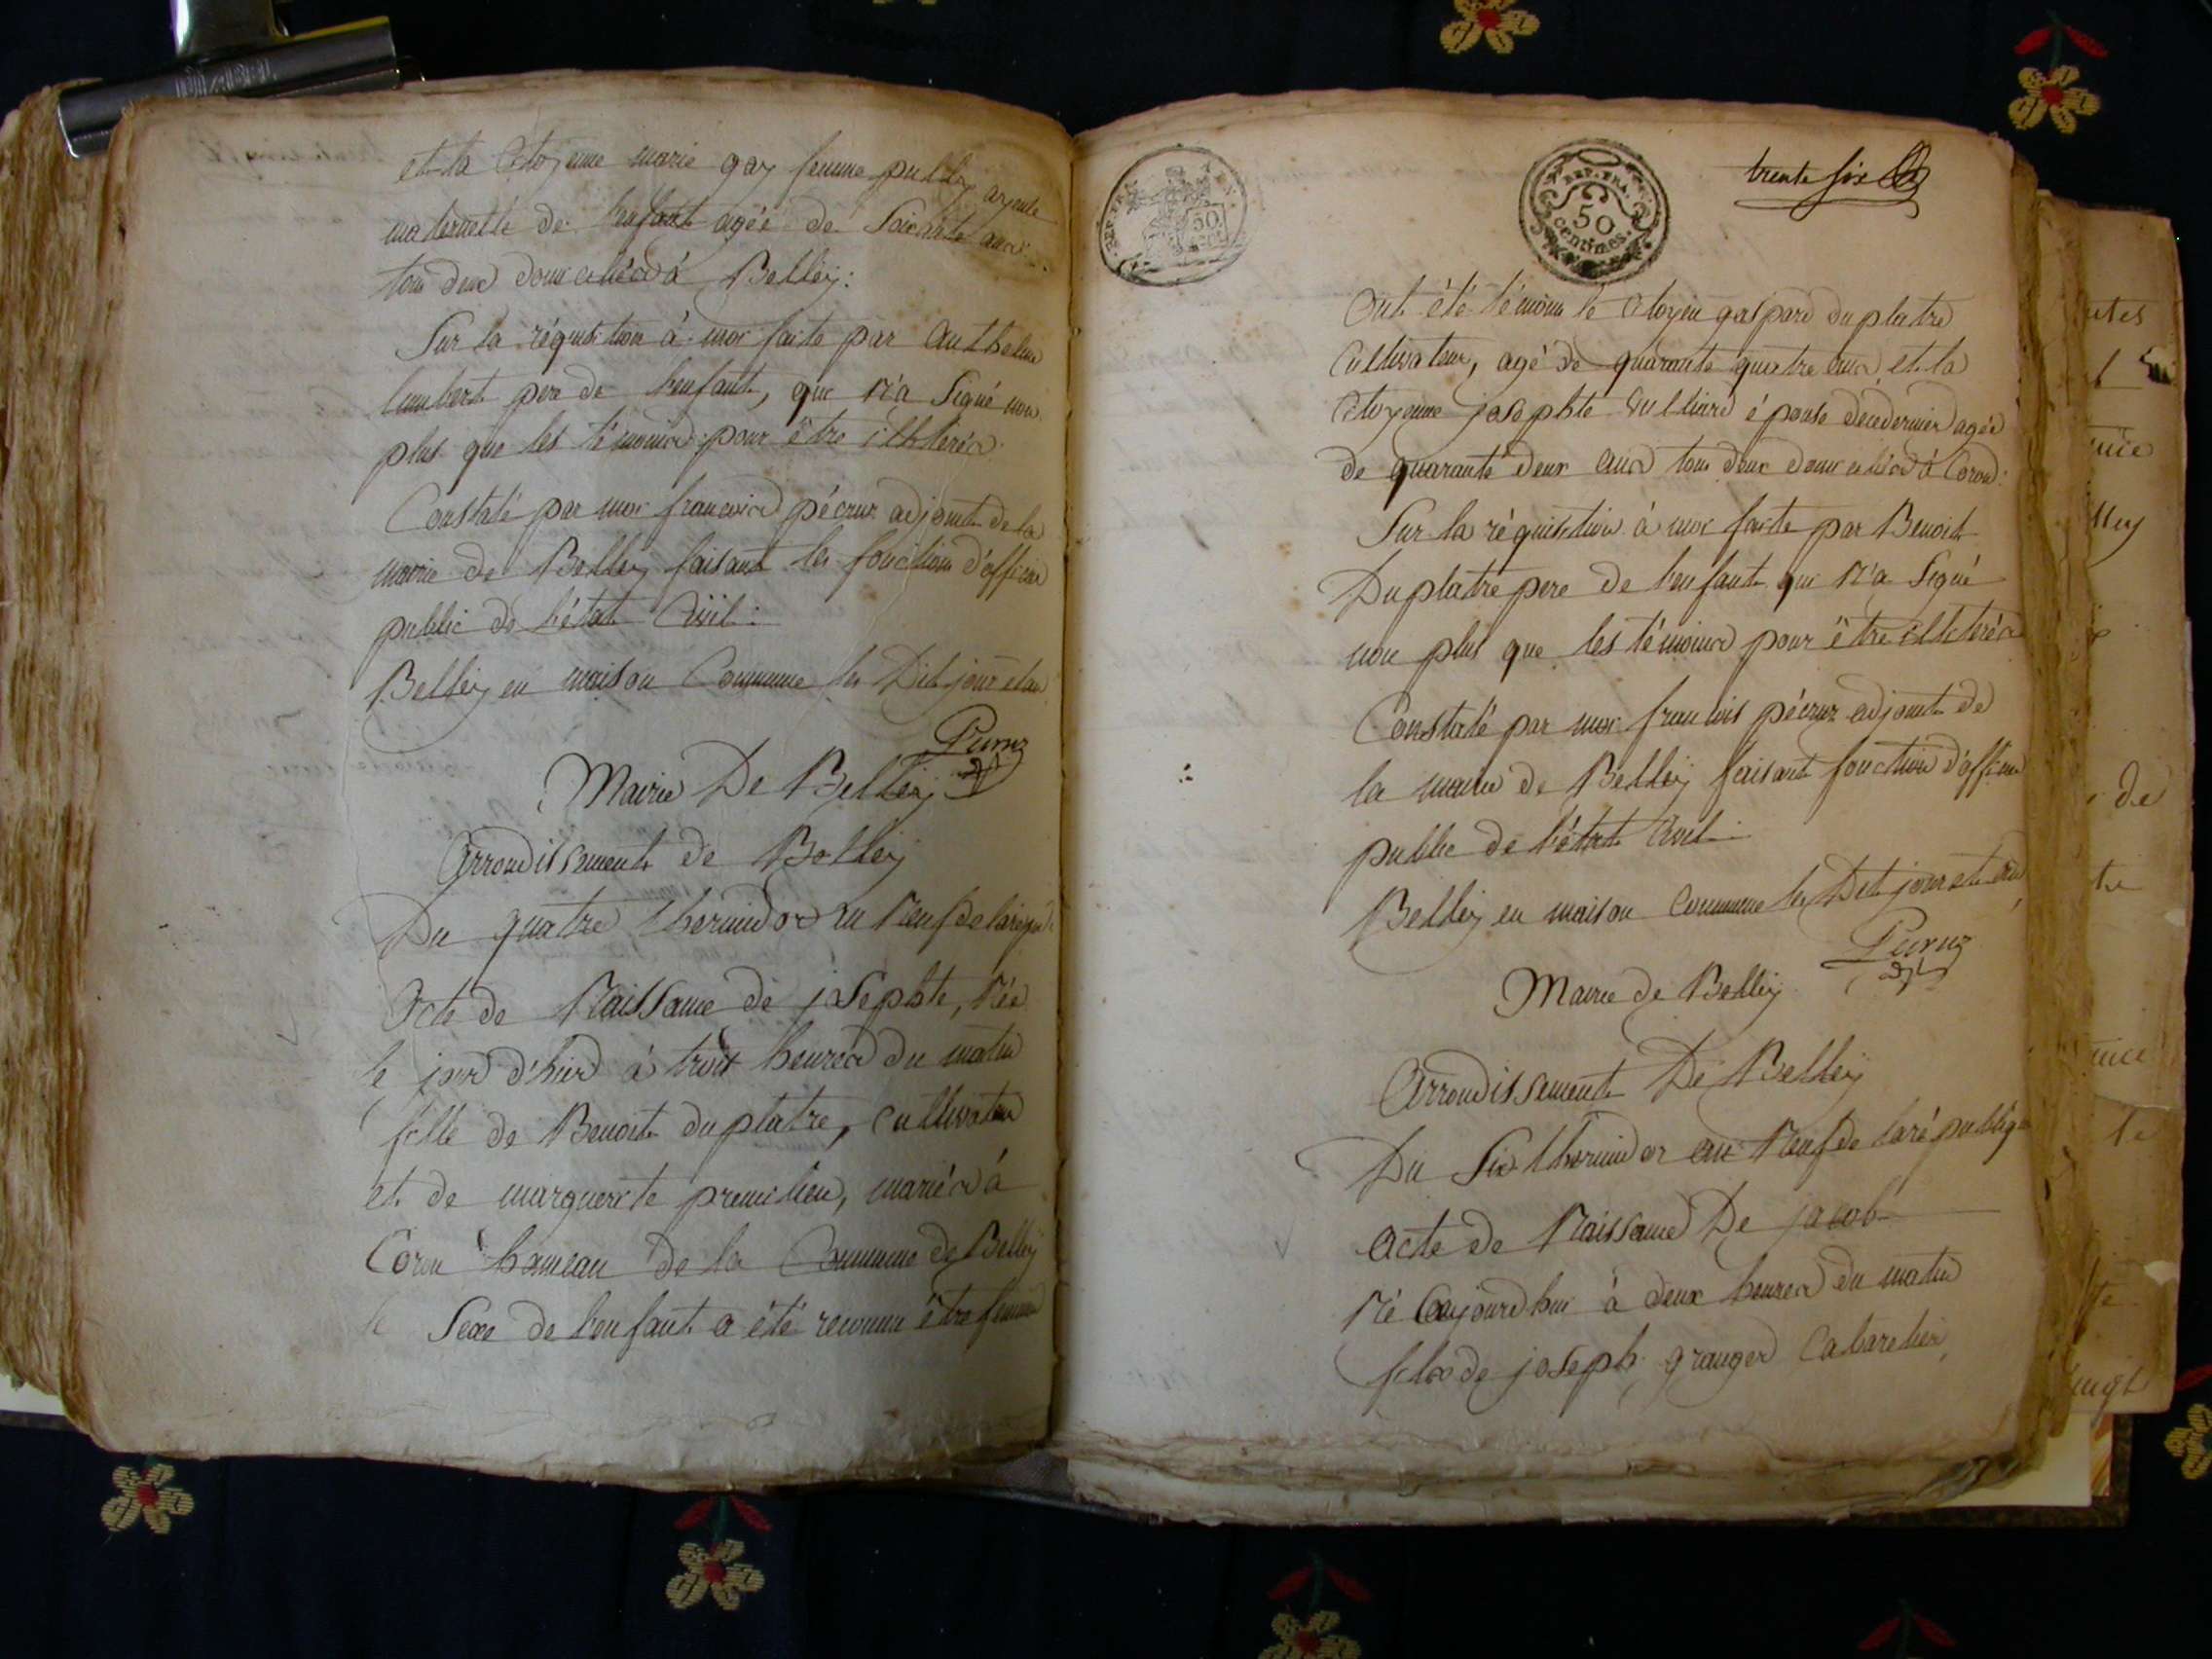 et la Citoyenne marie gay femme ayeule
maternelle de l'enfant agée de Soixante ans
tous deux domiciliés à Belley:
Sur la réquisition à moi faite par Anthelme
lambert pere de l'enfant, qui n'a Signé non
plus que les témoins pour être illiterés
Constaté par moi francois pécruz adjoint de la
mairie de Belley faisant les fonctions d'officier
public de l'état Civil:
Belley en maison Commune les Dit jour et an
Mairie De Belley
Arrondissement de Belley
Du quatre thermidor an Neuf de la
Acte de Naissance de josephte, Née
le jour d'hier à trois heures du matin
fille de Benoit duplatre, cultivateur
et de marguerite premilieu, mariés à
Coron hameau de la Commune de Belley
le Sexe de l'enfant a été reconnu être
REP. FRA.
50
centimes.
trente six
Ont été témoins le Citoyen gaspard duplatre
Cultivateur, agé de quarante quatre ans et la
Citoyenne josephte épouse de ce dernier agée
de quarante deux ans tous deux domiciliés à Coron:
Sur la réquisition à moi faite par Benoit
Duplatre pere de l'enfant qui n'a Signé
non plus que les témoins pour être illiterés
Constaté par moi francois pécruz adjoint de
la mairie de Belley faisant fonction d'officier
public de l'état Civil
Belley en maison commune les Dit jour et an
Mairie de Belley
Arrondissement De Belley
Du Six thermidor an Neuf de la république
Acte de Naissance De jacob
Né aujourdhui à deux heures du matin
fils de joseph granger Cabaretier,